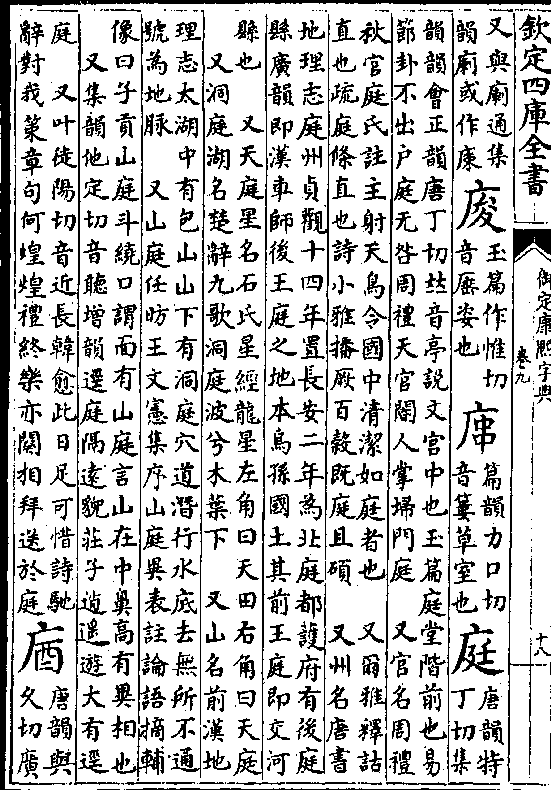 欽定四庫全書
御定康熙字典
卷九
十八
又與廟通集
韻廟或作庿
玉篇作惟切
音厜姿也
篇韻力口切
音簍草室也
庭
唐韻特
丁切集
韻韻會正韻唐丁切𠀤音亭說文宮中也玉篇庭堂階前也易
節卦不出戶庭无咎周禮天官閽人掌埽門庭　又官名周禮
秋官庭氏註主射天鳥令國中清潔如庭者也　又爾雅釋詁
直也疏庭條直也詩小雅播厥百穀既庭且碩　又州名唐書
地理志庭州貞觀十四年置長安二年為北庭都護府有後庭
縣廣韻即漢車師後王庭之地本烏孫國土其前王庭即交河
縣也　又天庭星名石氏星經龍星左角曰天田右角曰天庭
又洞庭湖名楚辭九歌洞庭波兮木葉下　又山名前漢地
理志太湖中有包山山下有洞庭穴道潛行水底去無所不通
號為地脈　又山庭任昉王文憲集序山庭異表註論語摘輔
像曰子貢山庭斗繞口謂面有山庭言山在中鼻高有異相也
又集韻地定切音聽增韻逕庭隔遠貌莊子逍遙遊大有逕
庭　又叶徒陽切音近長韓愈此日足可惜詩馳
辭對我策章句何煌煌禮終樂亦闋相拜送於庭
庮
唐韻與
久切廣